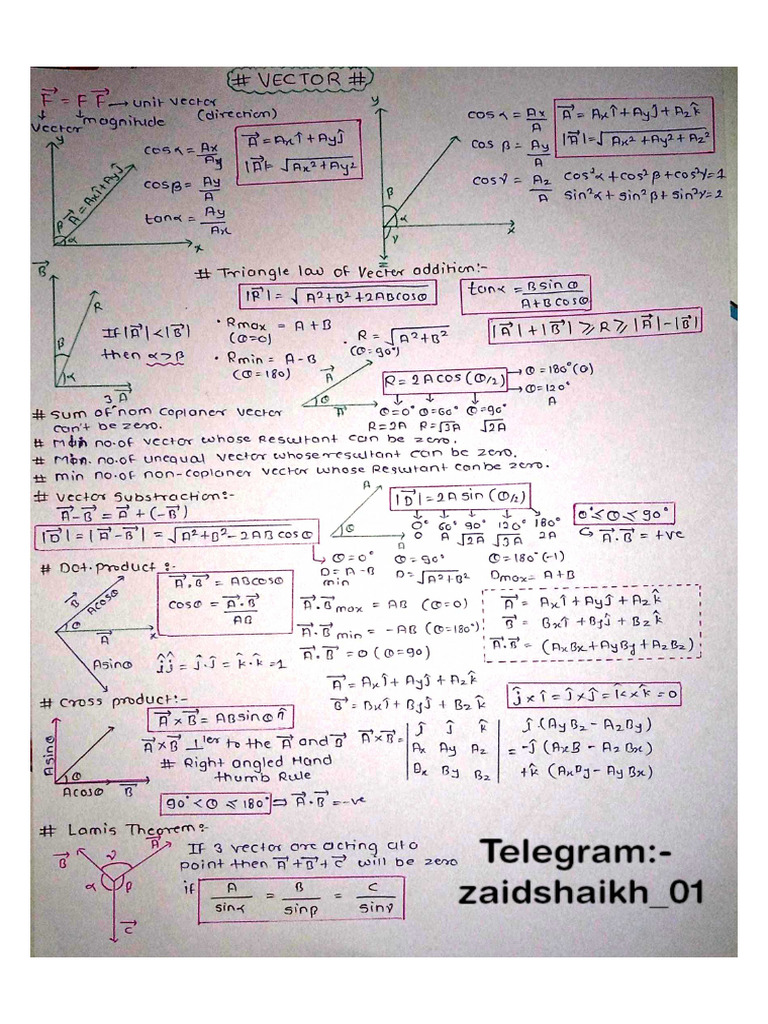 # VECTOR #
F⃗ = F F⃗ → unit vector
(direction)
magnitude
Vector
y
A⃗ = Axî + Ayĵ
β
α
x
cosα = Ax/Ay
cosβ = Ay/A
tanα = Ay/Ax
A⃗ = Axî + Ayĵ
|A⃗| = √Ax² + Ay²
y
β
α
γ
x
z
cosα = Ax/A
cosβ = Ay/A
cosγ = Az/A
A⃗ = Axî + Ayĵ + Azk̂
|A⃗| = √Ax² + Ay² + Az²
cos²α + cos²β + cos²γ = 1
sin²α + sin²β + sin²γ = 2
# Triangle law of Vector addition:-
B⃗
R
β
α
3 A⃗
|R⃗| = √A²+B²+2ABcosθ
tanα = Bsinθ/A+Bcosθ
If |A⃗| < |B⃗|
then α>β
• Rmax = A + B
(θ=0)
• Rmin = A - B
(θ=180)
• R = √A²+B²
(θ=90°)
|A⃗| + |B⃗| ≥ R ≥ |A⃗| - |B⃗|
A⃗
θ
A⃗
R = 2Acos(θ/2)
→ θ = 180° (0)
→ θ = 120°
A
θ=0° θ=60° θ=90°
R=2A R=√3A √2A
# Sum of nom coplaner vector
can't be zero.
# Min no. of vector whose Resultant can be zero.
# Min. no. of unequal vector whose resultant can be zero.
# min no. of non-coplaner vector whose Resultant can be zero.
# Vector Substraction:-
A⃗ - B⃗ = A⃗ + (-B⃗)
|D⃗| = |A⃗ - B⃗| = √A²+B²-2ABcosθ
A
θ
A
|D⃗| = 2A sin(θ/2)
0° 60° 90° 120° 180°
0 A √2A √3A 2A
0° ≤ θ ≤ 90°
↪ A⃗.B⃗ = +ve
→ θ = 0° θ = 90° θ = 180° (-1)
D = A - B D = √A²+B² Dmax = A + B
min
# Dot. product :-
B⃗
Acosθ
θ
A⃗
x
Asinθ
A⃗.B⃗ = ABcosθ
cosθ = A⃗.B⃗/AB
A⃗.B⃗max = AB (θ=0)
A⃗.B⃗min = -AB (θ=180°)
A⃗.B⃗ = 0 (θ=90)
ĵĵ = ĵ.ĵ = k̂.k̂ = 1
A⃗ = Axî + Ayĵ + Azk̂
B⃗ = Bxî + Byĵ + Bzk̂
A⃗.B⃗ = (AxBx + AyBy + AzBz)
# Cross product:-
Asinθ
θ
Acosθ B⃗
A⃗×B⃗ = ABsinθ n̂
A⃗×B⃗ ⊥ler to the A⃗ and B⃗
# Right angled Hand
thumb Rule
A⃗ = Axî + Ayĵ + Azk̂
B⃗ = Bxî + Byĵ + Bzk̂
ĵ × î = ĵ × ĵ = k̂ × k̂ = 0
A⃗×B⃗ = | ĵ ĵ k̂ | ĵ (AyBz - AzBy)
| Ax Ay Az | = -ĵ (AxB - AzBx)
| Bx By Bz | +k̂ (AxBy - AyBx)
90° < θ ≤ 180° ⇒ A⃗.B⃗ = -ve
# Lamis Theorem:-
A⃗
B⃗
γ
α
β
C⃗
If 3 vector are acting at o
point then A⃗ + B⃗ + C⃗ will be zero
if A/sinα = B/sinβ = C/sinγ
Telegram:-
zaidshaikh_01